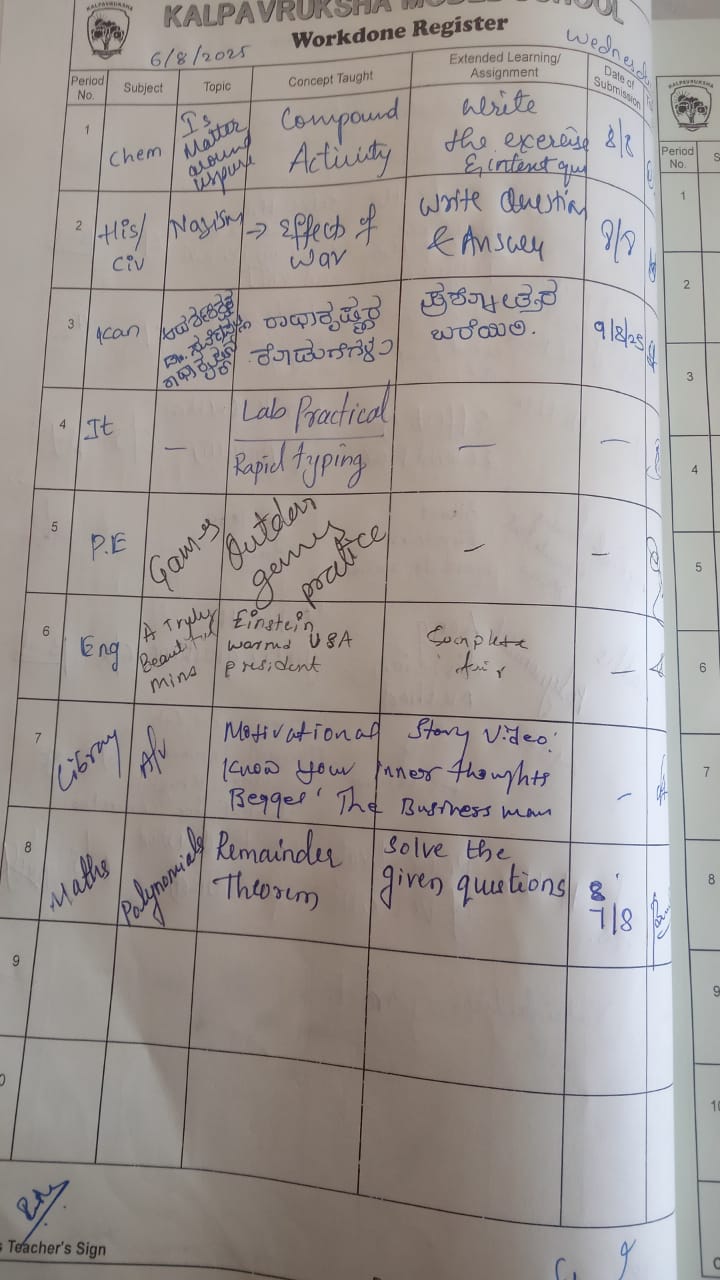 KALPAVRUKSHA MODEL SCHOOL
Workdone Register
6/8/2025
Period No.
Subject
Topic
Concept Taught
Extended Learning/ Assignment
Date of Submission
1
Chem
Is
Matter
around
us pure
Compound
Activity
Write
the exercise
& intext que
8/8
2
His/
Civ
Nazism
→ Effect of
war
Write Question
& Answer
8/8
3
Kan
ರಾಧಾಕೃಷ್ಣರ
ಪ್ರಶ್ನೋತ್ತರ
ಬರೆಯಿರಿ.
9/8/25
4
It
—
Lab Practical
Rapid typing
—
—
5
P.E
Games
Outdoor
games
pratice
—
—
6
Eng
A Truly
Beautiful
Mins
Einstein
warned USA
president
Complete
fair
—
7
Libray
A/v
Motivational Story Video:
Know your inner thoughts
Begger' The Business man
-
8
Maths
Polynomials
Remainder
Theorem
Solve the
given quetions
8
7/8
9
Teacher's Sign
KALPAVRUKSHA
Period No.
1
2
3
4
5
6
7
8
9
10